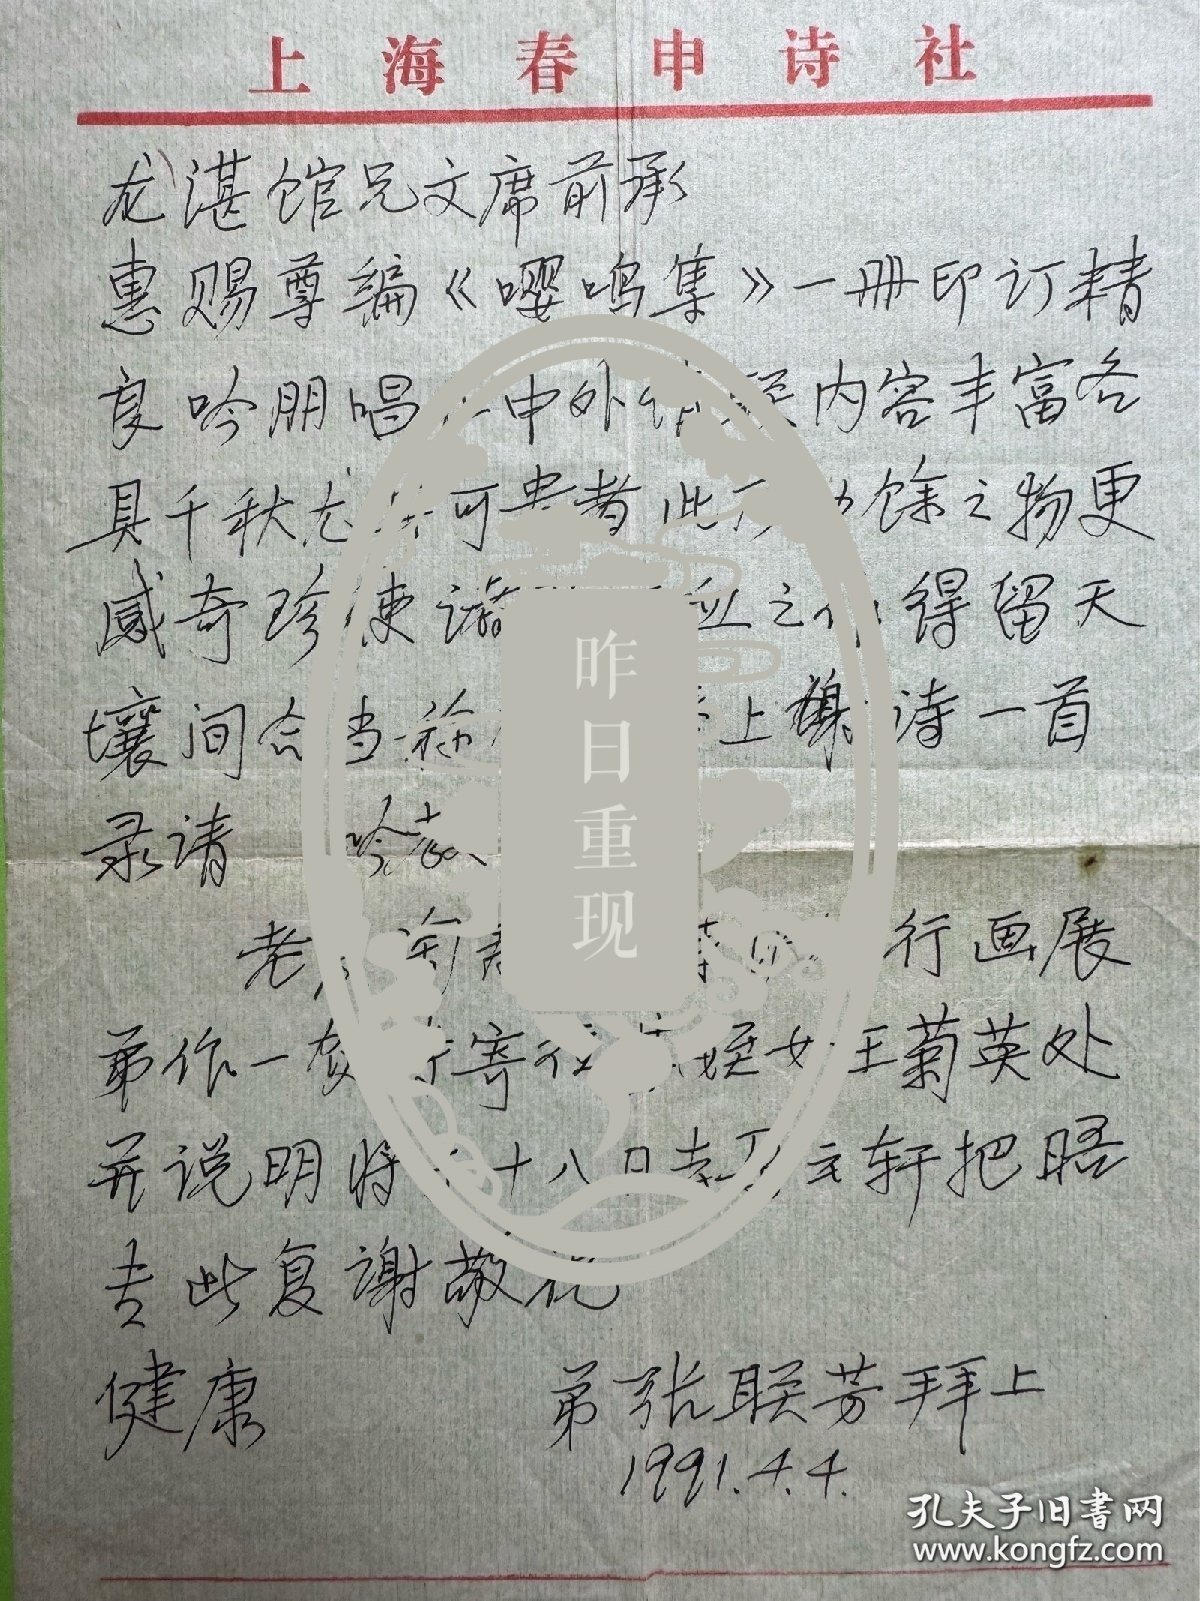 上海春申诗社
龙湛馆兄文席前承
惠赐尊编《嘤鸣集》一册印订精
良吟朋唱 中外 内容丰富各
具千秋尤 可贵者此 馀之物更
感奇珍使诸 之作得留天
壤间合当称 上 诗一首
录请 吟政
老 行画展
弟作一 诗寄 侄女王菊英处
并说明将 十八日去 轩把晤
专此复谢敬祝
健康 弟张联芳拜上
1991.4.4.
昨日重现
孔夫子旧书网
www.kongfz.com